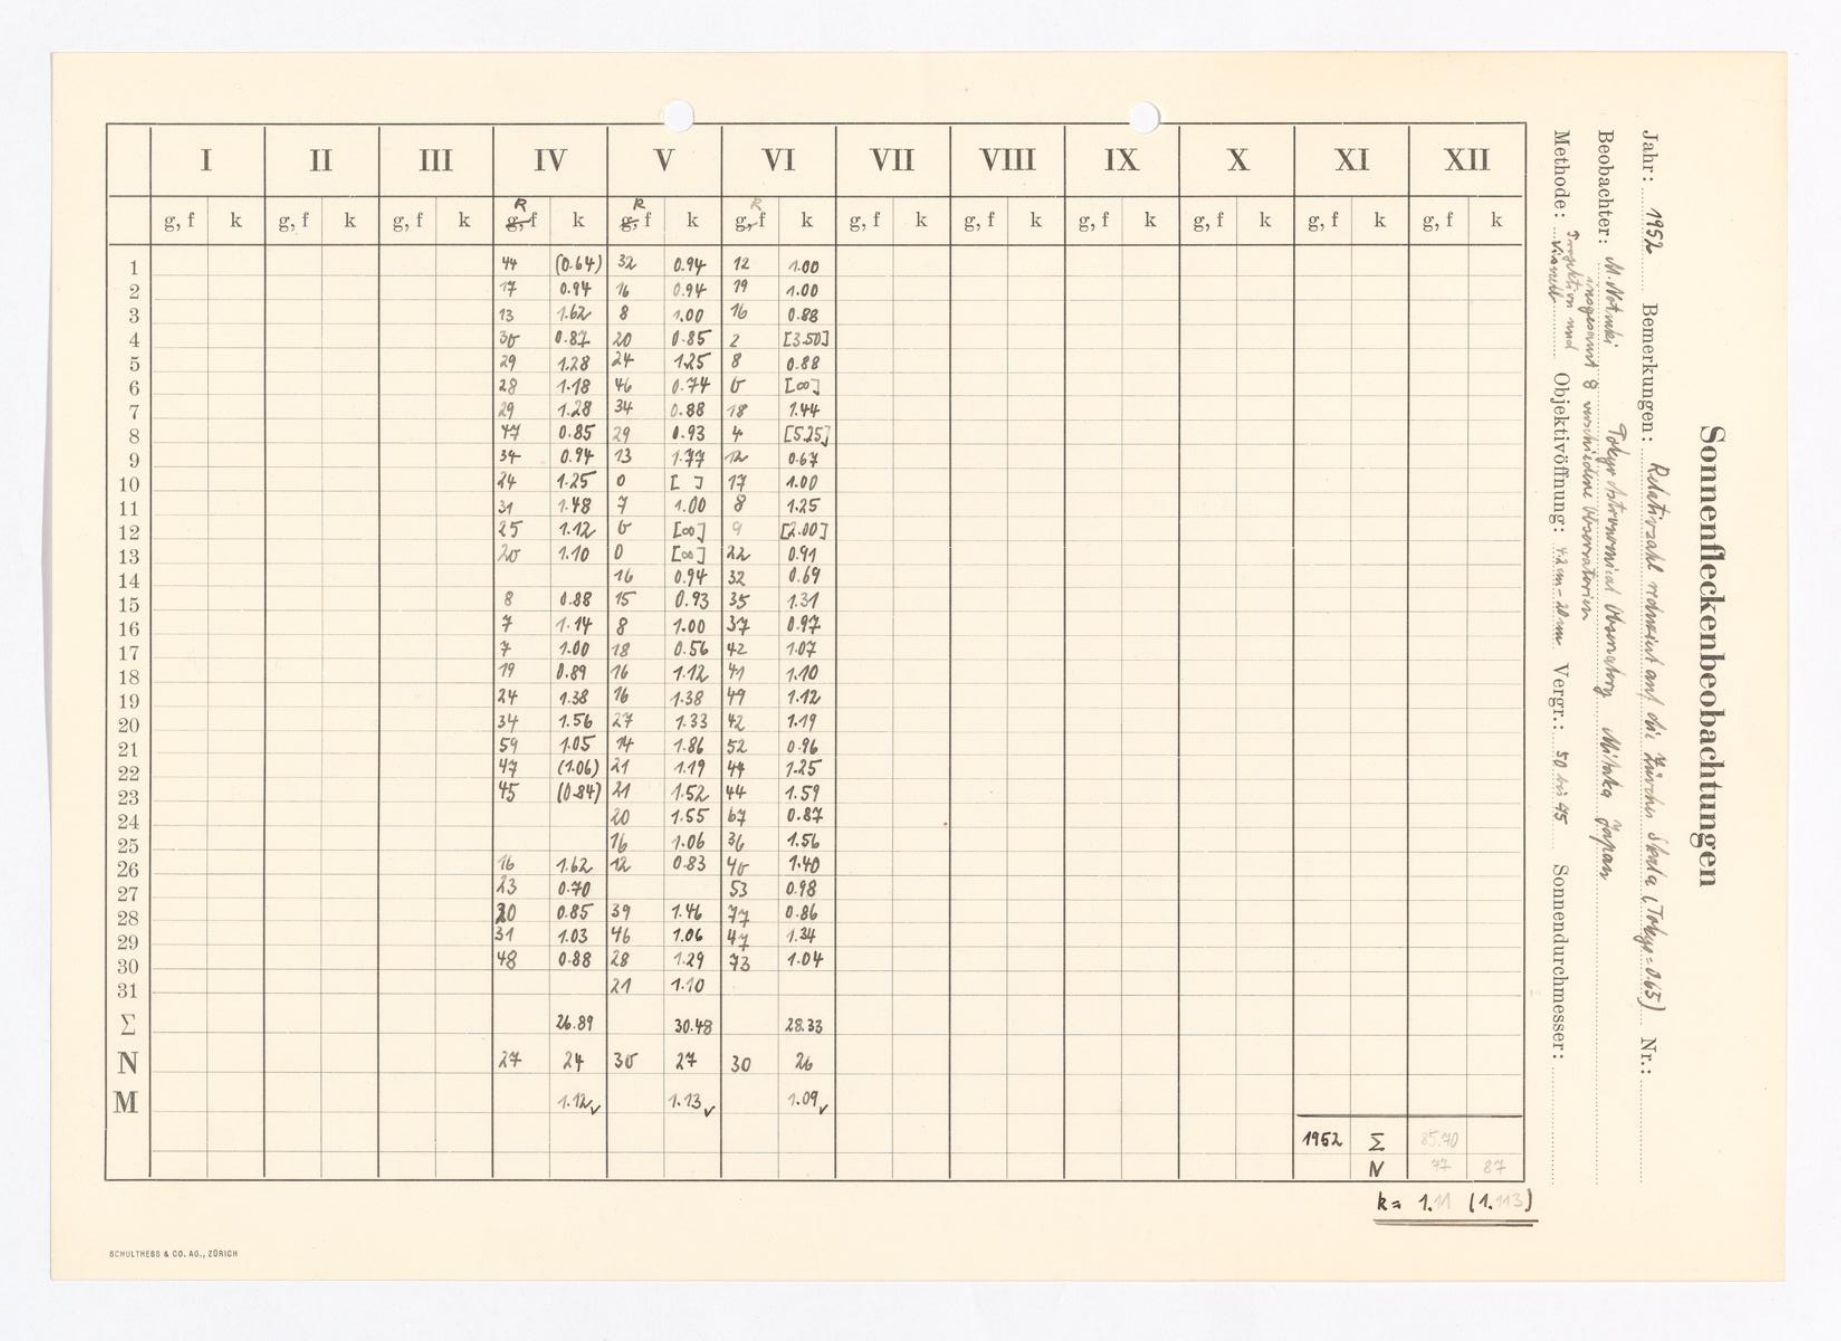 Sonnenfleckenbeobachtungen
Jahr: 1952 Bemerkungen: Relativzahl reduziert auf die Zürcher Skala (Tokyo = 0.65) Nr.:
Beobachter: M. Notuki Tokyo Astronomical Observatory Mitaka Japan
insgesamt 8 verschiedene Observatorien
Methode: Projektion und visuell Objektivöffnung: 4.2 cm - 20 cm Vergr.: 50 bis 45 Sonnendurchmesser:
I II III IV V VI VII VIII IX X XI XII
R R R
g, f k g, f k g, f k g, f k g, f k g, f k g, f k g, f k g, f k g, f k g, f k g, f k
1 44 (0.64) 32 0.94 12 1.00
2 17 0.94 16 0.94 19 1.00
3 13 1.62 8 1.00 16 0.88
4 30 0.87 20 0.85 2 [3.50]
5 29 1.28 24 1.25 8 0.88
6 28 1.18 46 0.74 0 [∞]
7 29 1.28 34 0.88 18 1.44
8 47 0.85 29 0.93 4 [5.25]
9 34 0.94 13 1.77 12 0.67
10 24 1.25 0 [ ] 17 1.00
11 31 1.48 7 1.00 8 1.25
12 25 1.12 0 [∞] 9 [2.00]
13 20 1.10 0 [∞] 22 0.91
14 16 0.94 32 0.69
15 8 0.88 15 0.93 35 1.31
16 7 1.14 8 1.00 37 0.97
17 7 1.00 18 0.56 42 1.07
18 19 0.89 16 1.12 41 1.10
19 24 1.38 16 1.38 49 1.12
20 34 1.56 27 1.33 42 1.19
21 59 1.05 14 1.86 52 0.96
22 47 (1.06) 21 1.19 44 1.25
23 45 (0.84) 21 1.52 44 1.59
24 20 1.55 67 0.87
25 16 1.06 36 1.56
26 16 1.62 12 0.83 40 1.40
27 23 0.70 53 0.98
28 20 0.85 39 1.46 77 0.86
29 31 1.03 46 1.06 47 1.34
30 48 0.88 28 1.29 73 1.04
31 21 1.10
Σ 26.89 30.48 28.33
N 27 24 30 27 30 26
M 1.12✓ 1.13✓ 1.09✓
1952 Σ 85.70
N 77 87
k = 1.11 (1.113)
SCHULTHESS & CO. AG., ZÜRICH